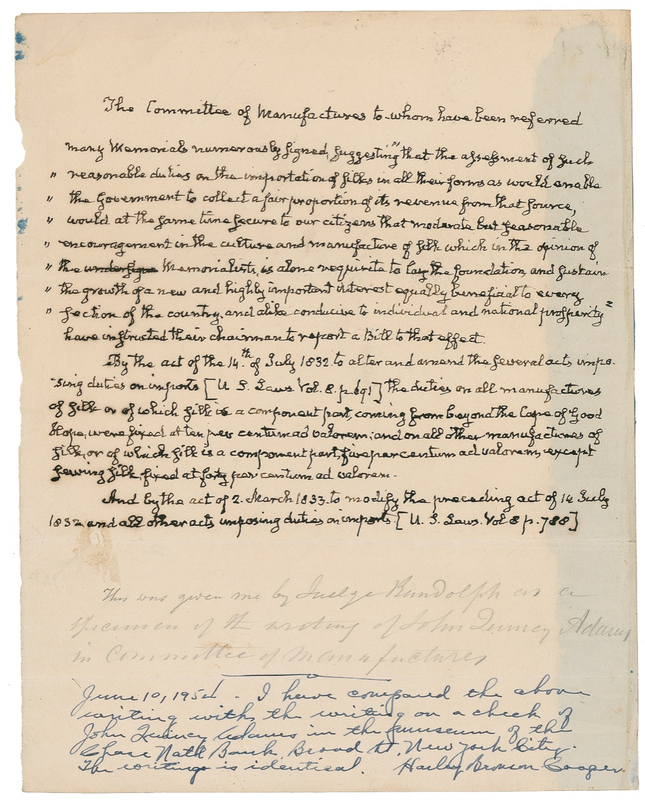 The Committee of Manufactures to whom have been referred
many Memorials numerously signed, suggesting "that the assessment of such
" reasonable duties on the importation of silks in all their forms as would enable
" the Government to collect a fair proportion of its revenue from that source,
" would at the same time secure to our citizens that moderate but seasonable
" encouragement in the culture and manufacture of silk which in the opinion of
" the undersigne Memorialists, is alone requisite to lay the foundation, and sustain
" the growth of a new and highly important interest equally beneficial to every
" section of the country, and alike conducive to individual and national prosperity"
have instructed their chairman to report a Bill to that effect.
By the act of the 14th of July 1832 to alter and amend the several acts impo-
sing duties on imports [U. S. Laws Vol. 8. p. 691] the duties on all manufactures
of silk or of which silk is a component part, coming from beyond the Cape of Good
Hope, were fixed at ten per centum ad valorem; and on all other manufactures of
silk, or of which silk is a component part, five per centum ad valorem, except
sewing silk, fixed at forty per centum ad valorem.
And by the act of 2. March 1833. to modify the preceding act of 14 July
1832 and all other acts imposing duties on imports [U. S. Laws. Vol 8 p. 788]
This was given me by Judge Randolph as a
specimen of the writing of John Quincy Adams
in Committee of Manufactures
June 10, 1954. I have compared the above
writing with the writing on a check of
John Quincy Adams in the museum of the
Chase Natl Bank, Broad St, New York City.
The writing is identical. Harley Bronson